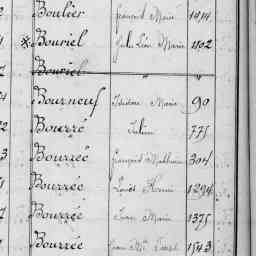 Boulier François Marie 1414
Bouriel Jules Léon Marie 1102
Bouriel " "
Bourneuf Isidore Marie 90
Bourré Julien 775
Bourrée François Mathurin 304
Bourrée Louis 1294
Bourrée Jean Marie 1375
Bourrée Jean Mie 1543